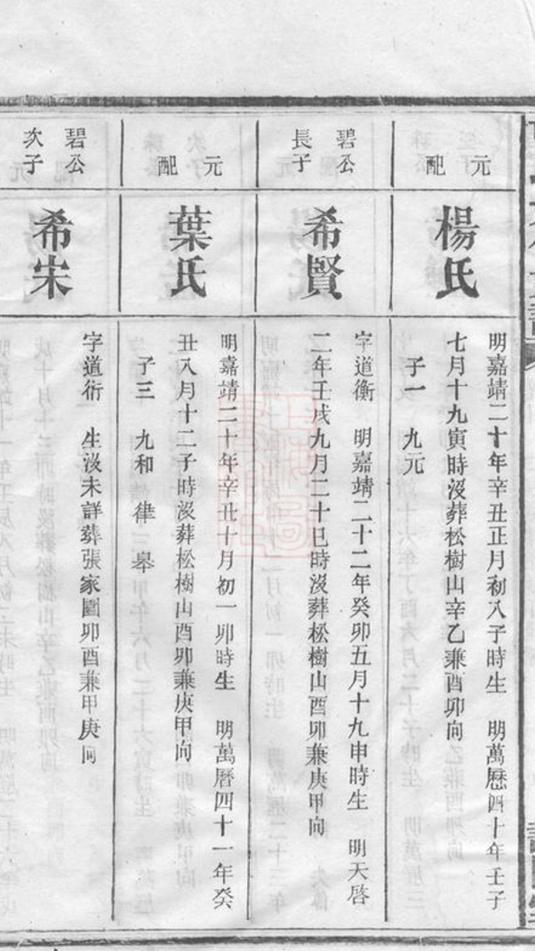 元配
楊氏
明嘉靖二十年辛丑正月初八子時生　明萬歷四十年壬子
七月十九寅時沒葬松樹山辛乙兼酉卯向
子一　九元
碧公
長子
希賢
字道衡　明嘉靖二十二年癸卯五月十九申時生　明天啓
二年壬戌九月二十巳時沒葬松樹山酉卯兼庚甲向
元配
葉氏
明嘉靖二十年辛丑十月初一卯時生　明萬曆四十一年癸
丑八月十二子時沒葬松樹山酉卯兼庚甲向
子三　九和　律　皋
碧公
次子
希宋
字道衍　生沒未詳葬張家園卯酉兼甲庚向